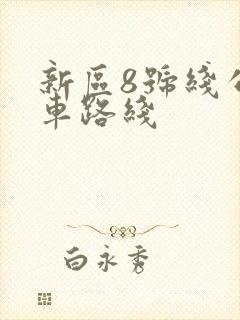 新區8號綫公
車路綫
白永秀